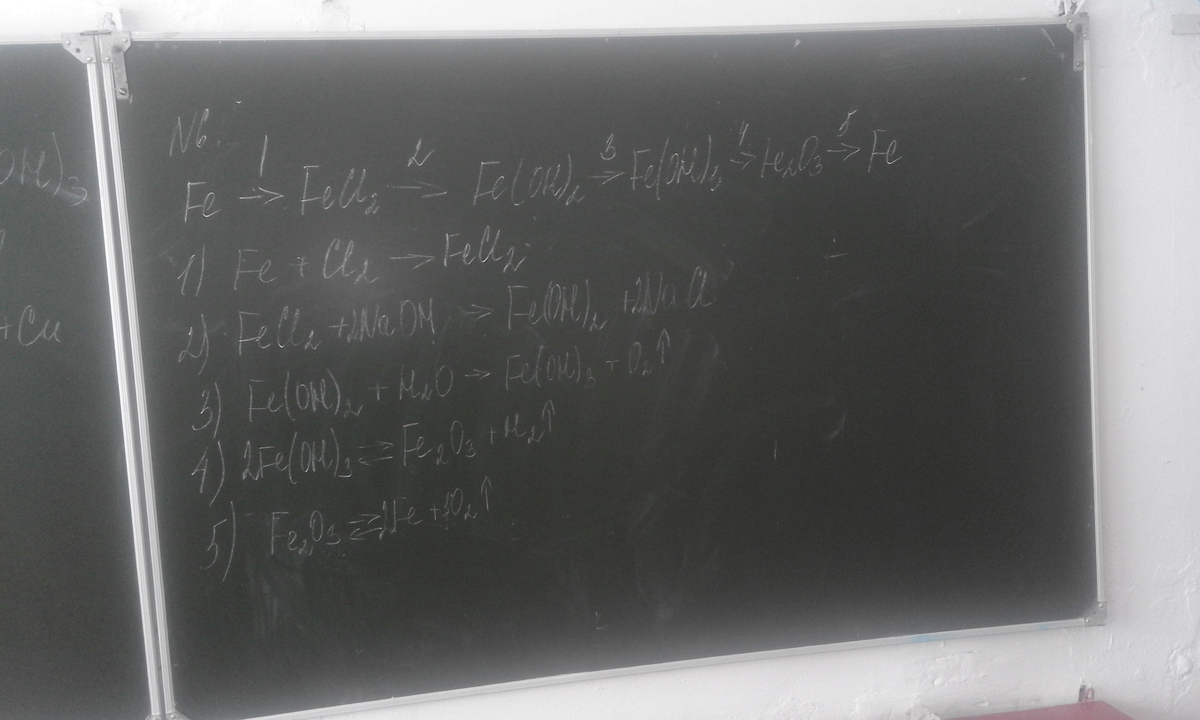 OH)3
+Cu
N6.
1 2 3 4 5
Fe → FeCl2 → Fe(OH)2 → Fe(OH)3 → Fe2O3 → Fe
1) Fe + Cl2 → FeCl2
2) FeCl2 + 2NaOH → Fe(OH)2 + 2NaCl
3) Fe(OH)2 + H2O → Fe(OH)3 + O2↑
4) 2Fe(OH)3 ⇄ Fe2O3 + H2↑
5) Fe2O3 ⇄ 2Fe + 3O2↑